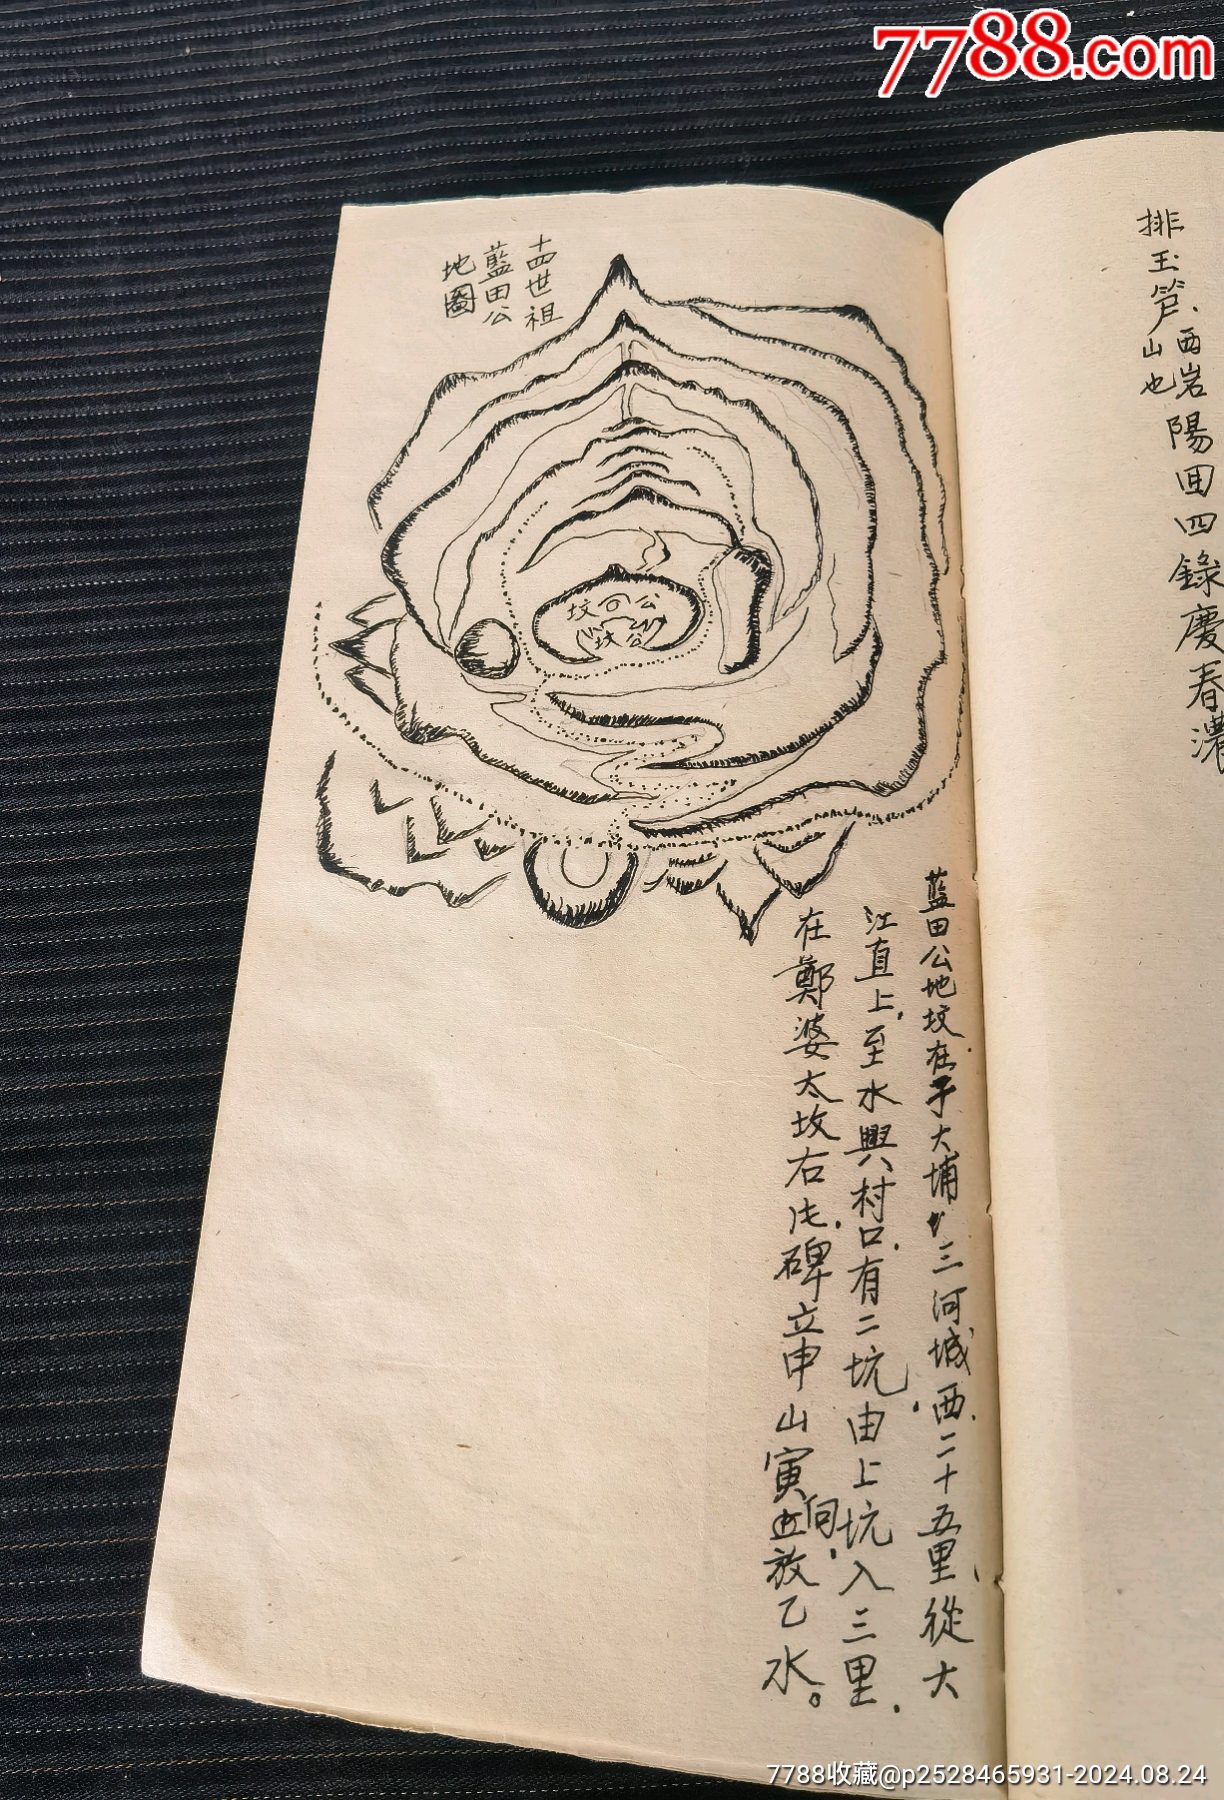 7788.com
排玉笋、西岩
山也
陽田四錄慶春濃
十四世祖
藍田公
地圖
坟 公
坟 公
藍田公地坟、在于大埔、三河城西、二十五里、從大
江直上、至水興村口、有二坑、由上坑入三里、
在鄭婆太坟右片、碑立申山寅向、放乙水。
7788收藏@p2528465931-2024.08.24